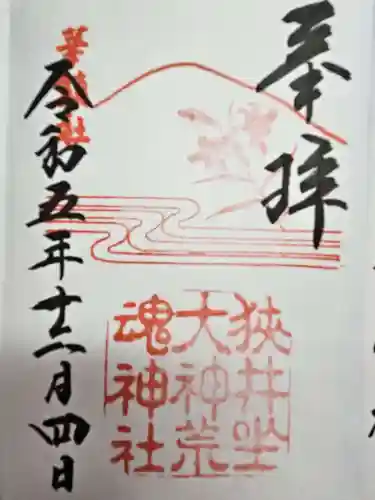 奉拝
華鎮社
狭井坐
大神荒
魂神社
令和五年十二月四日